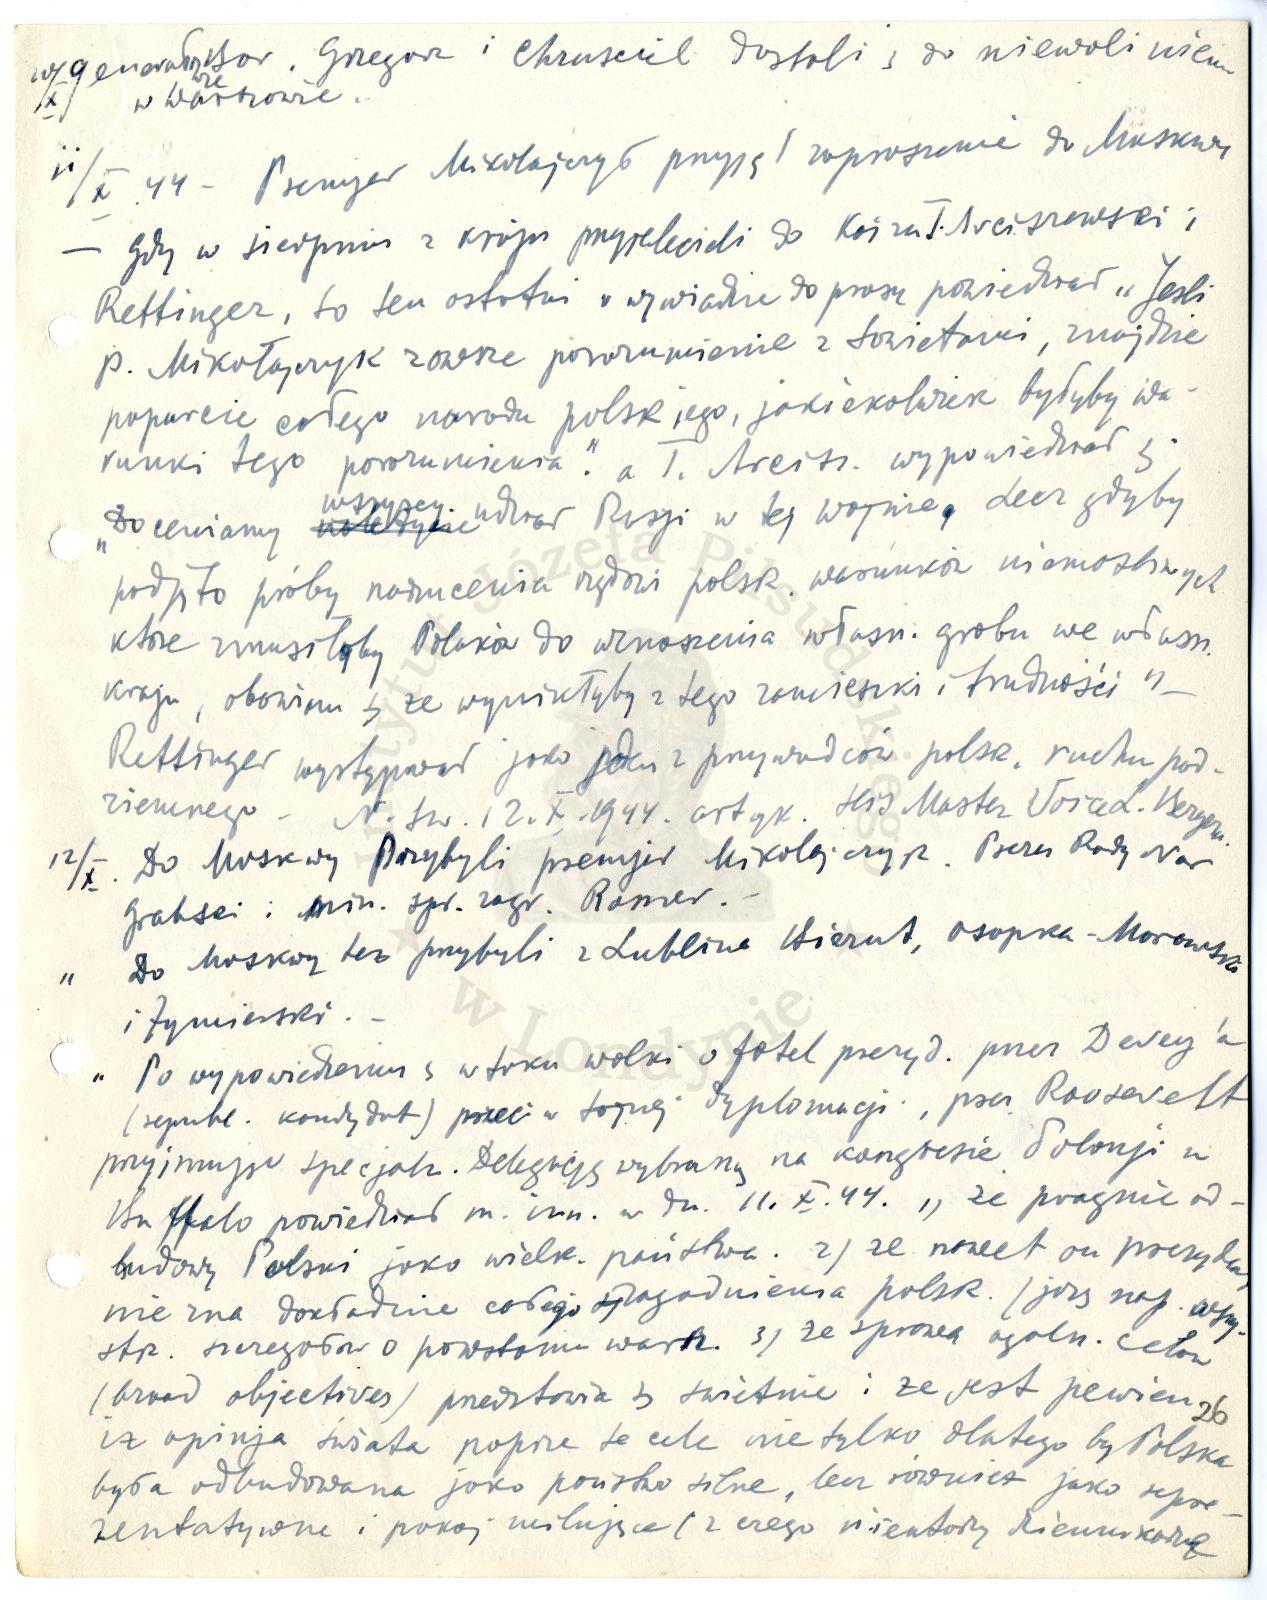 generałowie Bor, Grzegorz i Chruściel dostali s do niewoli niem.
w Warszawie.
11/X.44 - Premjer Mikołajczyk przyjął zaproszenie do Moskwy
— Gdy w sierpniu z kraju przylecieli do Kairu T. Arciszewski i
Rettinger, to ten ostatni w wywiadzie do prasy powiedział „Jeśli
p. Mikołajczyk zawrze porozumienie z Sowietami, znajdzie
poparcie całego narodu polskiego, jakiekolwiek byłyby wa-
runki tego porozumienia". a T. Arcisz. wypowiedział s.
„Doceniamy wszyscy udział Rosji w tej wojnie, Lecz gdyby
podjęto próby narzucenia rządowi polsk. warunków niemożliwych
które zmusiłyby Polaków do wznoszenia własn. grobu we własn.
kraju, obawiam s, że wynikłyby z tego zamieszki i trudności" —
Rettinger występował jako jeden z przywódców polsk. ruchu pod-
ziemnego - N. Sw. 12.X.1944. artyk. His Master Voice L. Bergera.
12/X. Do Moskwy Przybyli premjer Mikołajczyk. Prezes Rady Nar
Grabski i min. spr. zagr. Romer. -
" Do Moskwy też przybyli z Lublina Bierut, Osopka-Morawski
i Żymierski. -
" Po wypowiedzeniu s w toku walki o fotel prezyd. przez Dewey'a
(republ. kandydat) przeciw tajnej dyplomacji, prez. Roosevelt
przyjmując specjaln. Delegację wybraną na kongresie Polonji w
Buffalo powiedział m. inn. w dn. 11.X.44. 1) że pragnie od-
budowy Polski jako wielk. państwa. 2) że nawet on prezydent
nie zna dokładnie całego zagadnienia polsk. (jak nap. wszy-
stk. szczegółów o powstaniu warsz. 3) że sprawa ogóln. celów
(broad objectives) przedstawia s świetnie i że jest pewien
iż opinja świata poprze te cele nie tylko dlatego by Polska
była odbudowana jako państwo silne, lecz również jako repre-
zentatywne i pokój miłujące (z czego niektórzy dziennikarze
26
Instytut Józefa Piłsudskiego
w Londynie